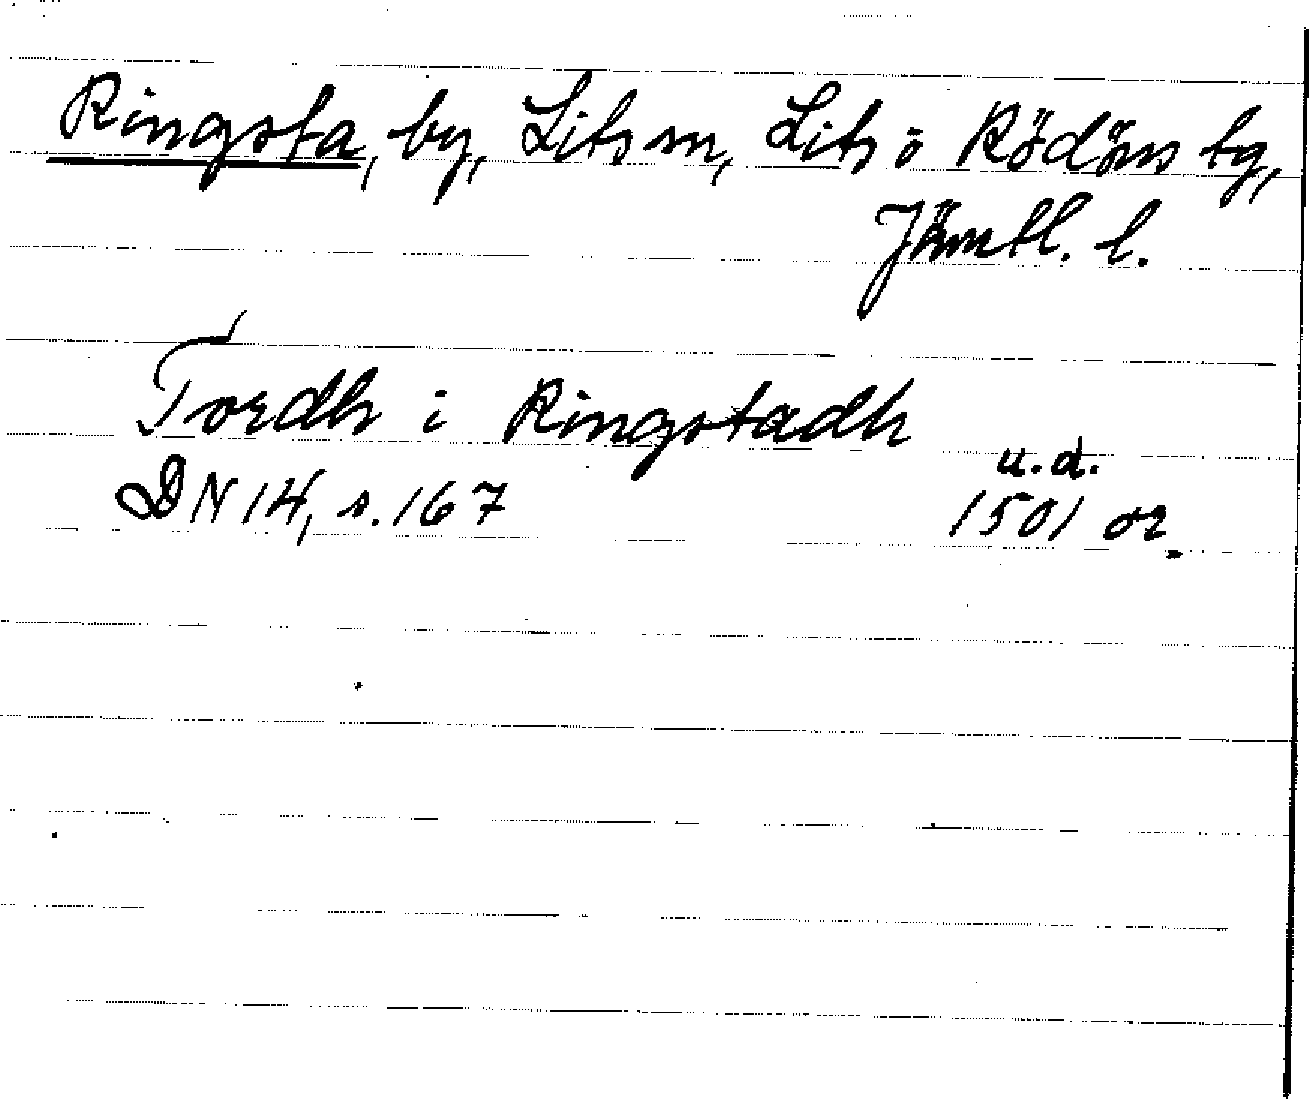 Ringsta, by, Lits sn, Lits o Rödöns tg,
Jämtl. l.
Tordh i Ringstadh
u.d.
DN 14, s. 167 1501 or.